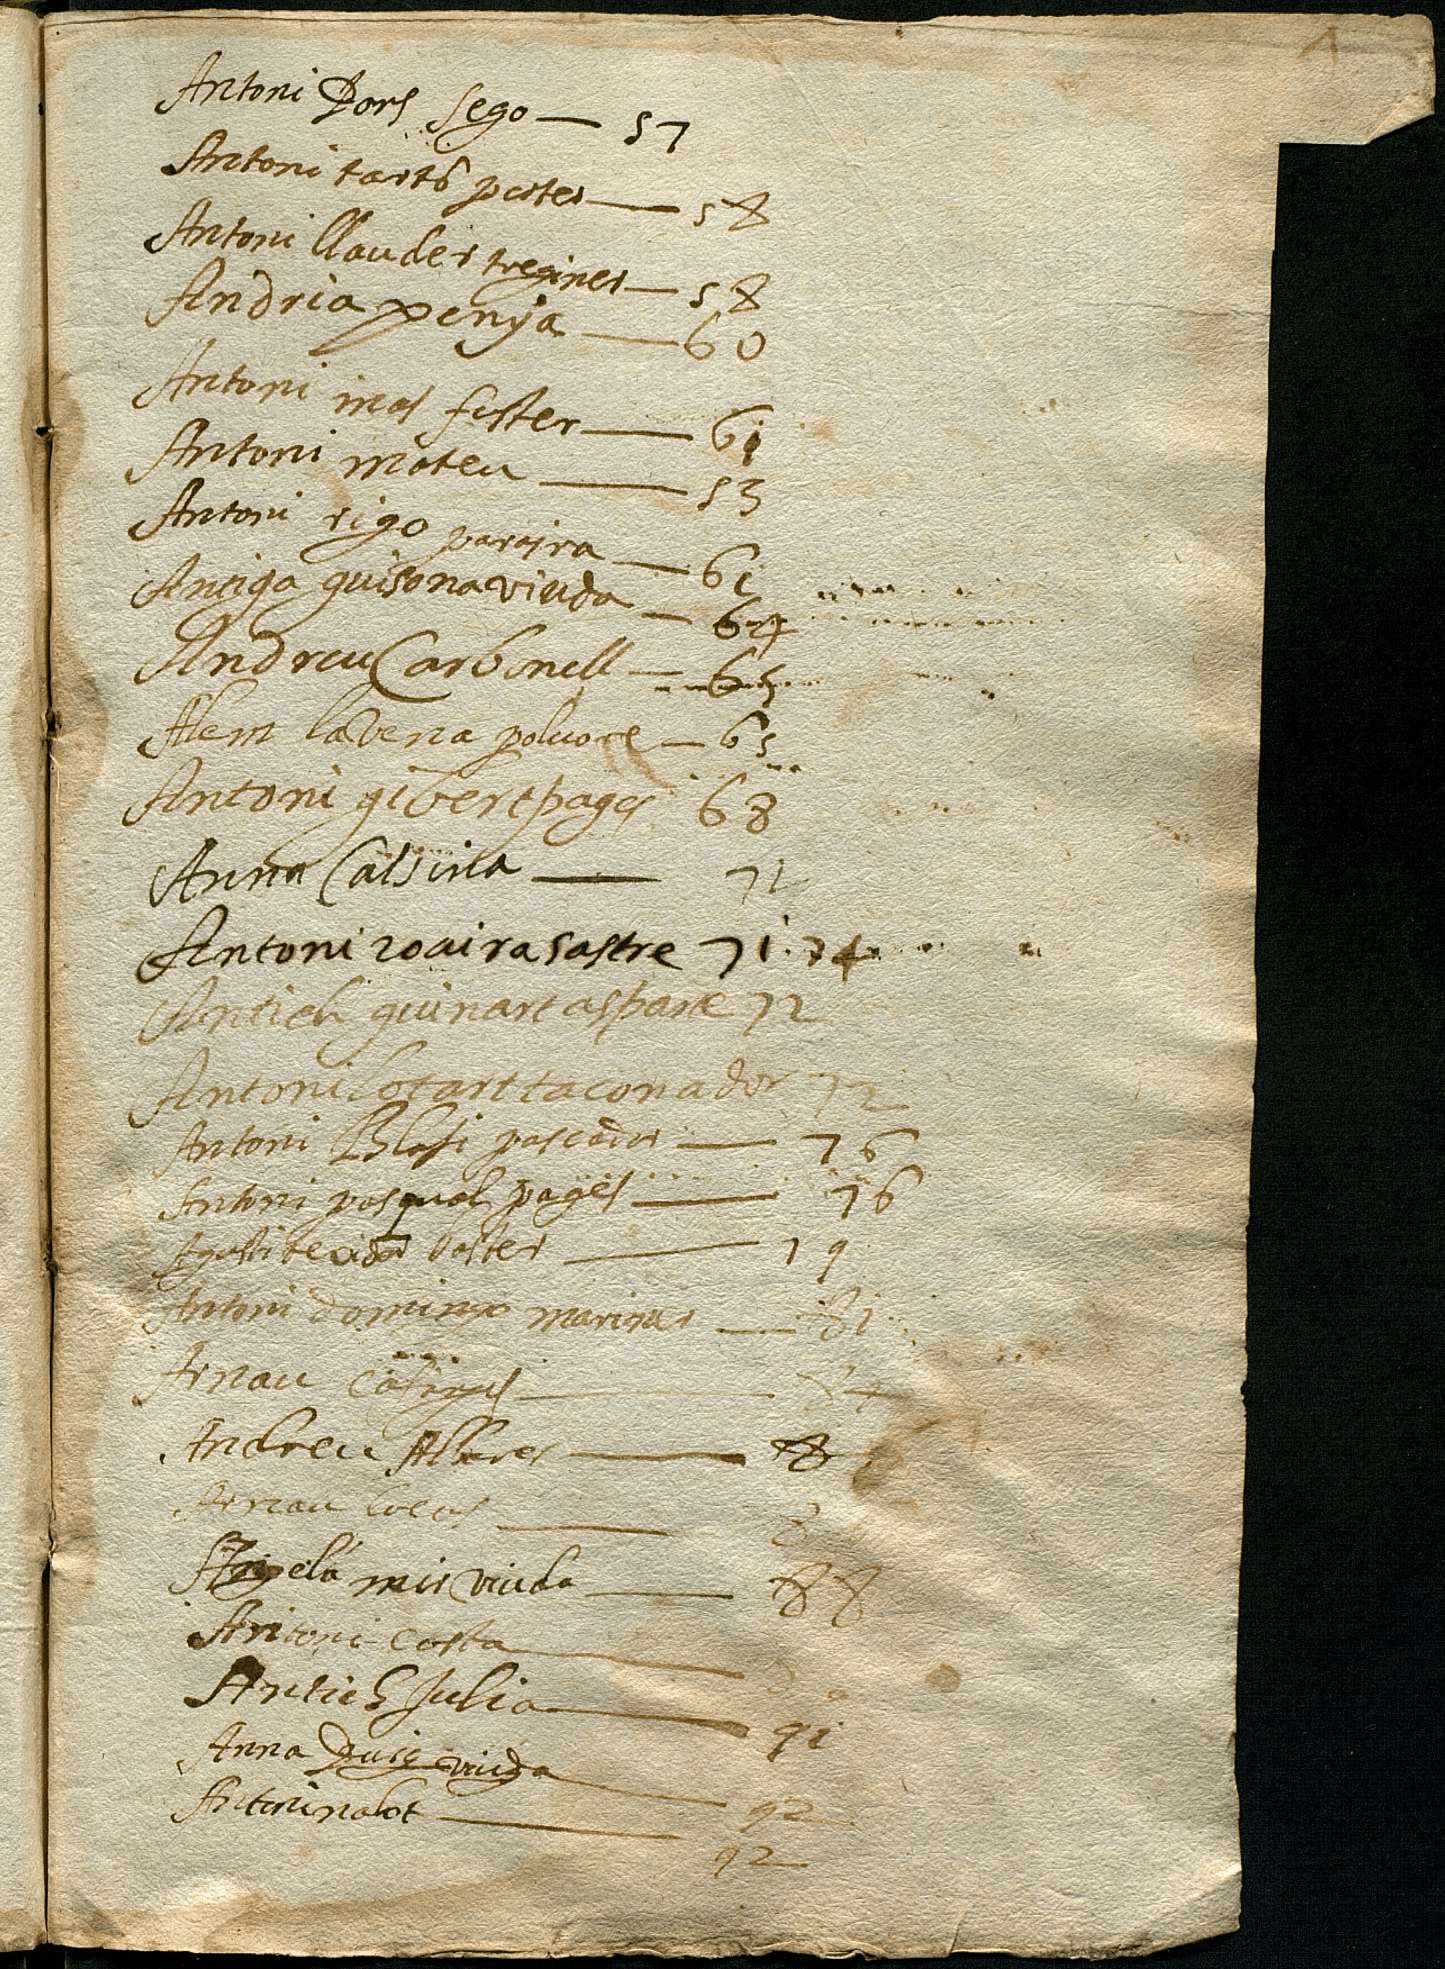 Antoni Pors sego — 57
Antoni tarto porter — 58
Antoni llauder treginer — 58
Andria penya — 60
Antoni mas fuster — 61
Antoni mateu — 53
Antoni rigo parayra — 61
Aneiga guisona viuda — 64
Andreu Carbonell — 65
Alem la vena — 65
Antoni gibert pages 68
Anna Calsina — 71
Antoni roaira sastre 71. 74
Antich guinart aspase 72
Antoni lotart taconador 72
Antoni Blasi pascador — 76
Antoni pasqual pages — 76
Agusti taster — 79
Antoni domingo mariner — 81
Arnau — 84
Andreu Albares — 8
Arnau lucas — 8
Angela mir viuda — 88
Antoni costa —
Antich Julia — 91
Anna Puig viuda — 92
Antoni nalot — 92